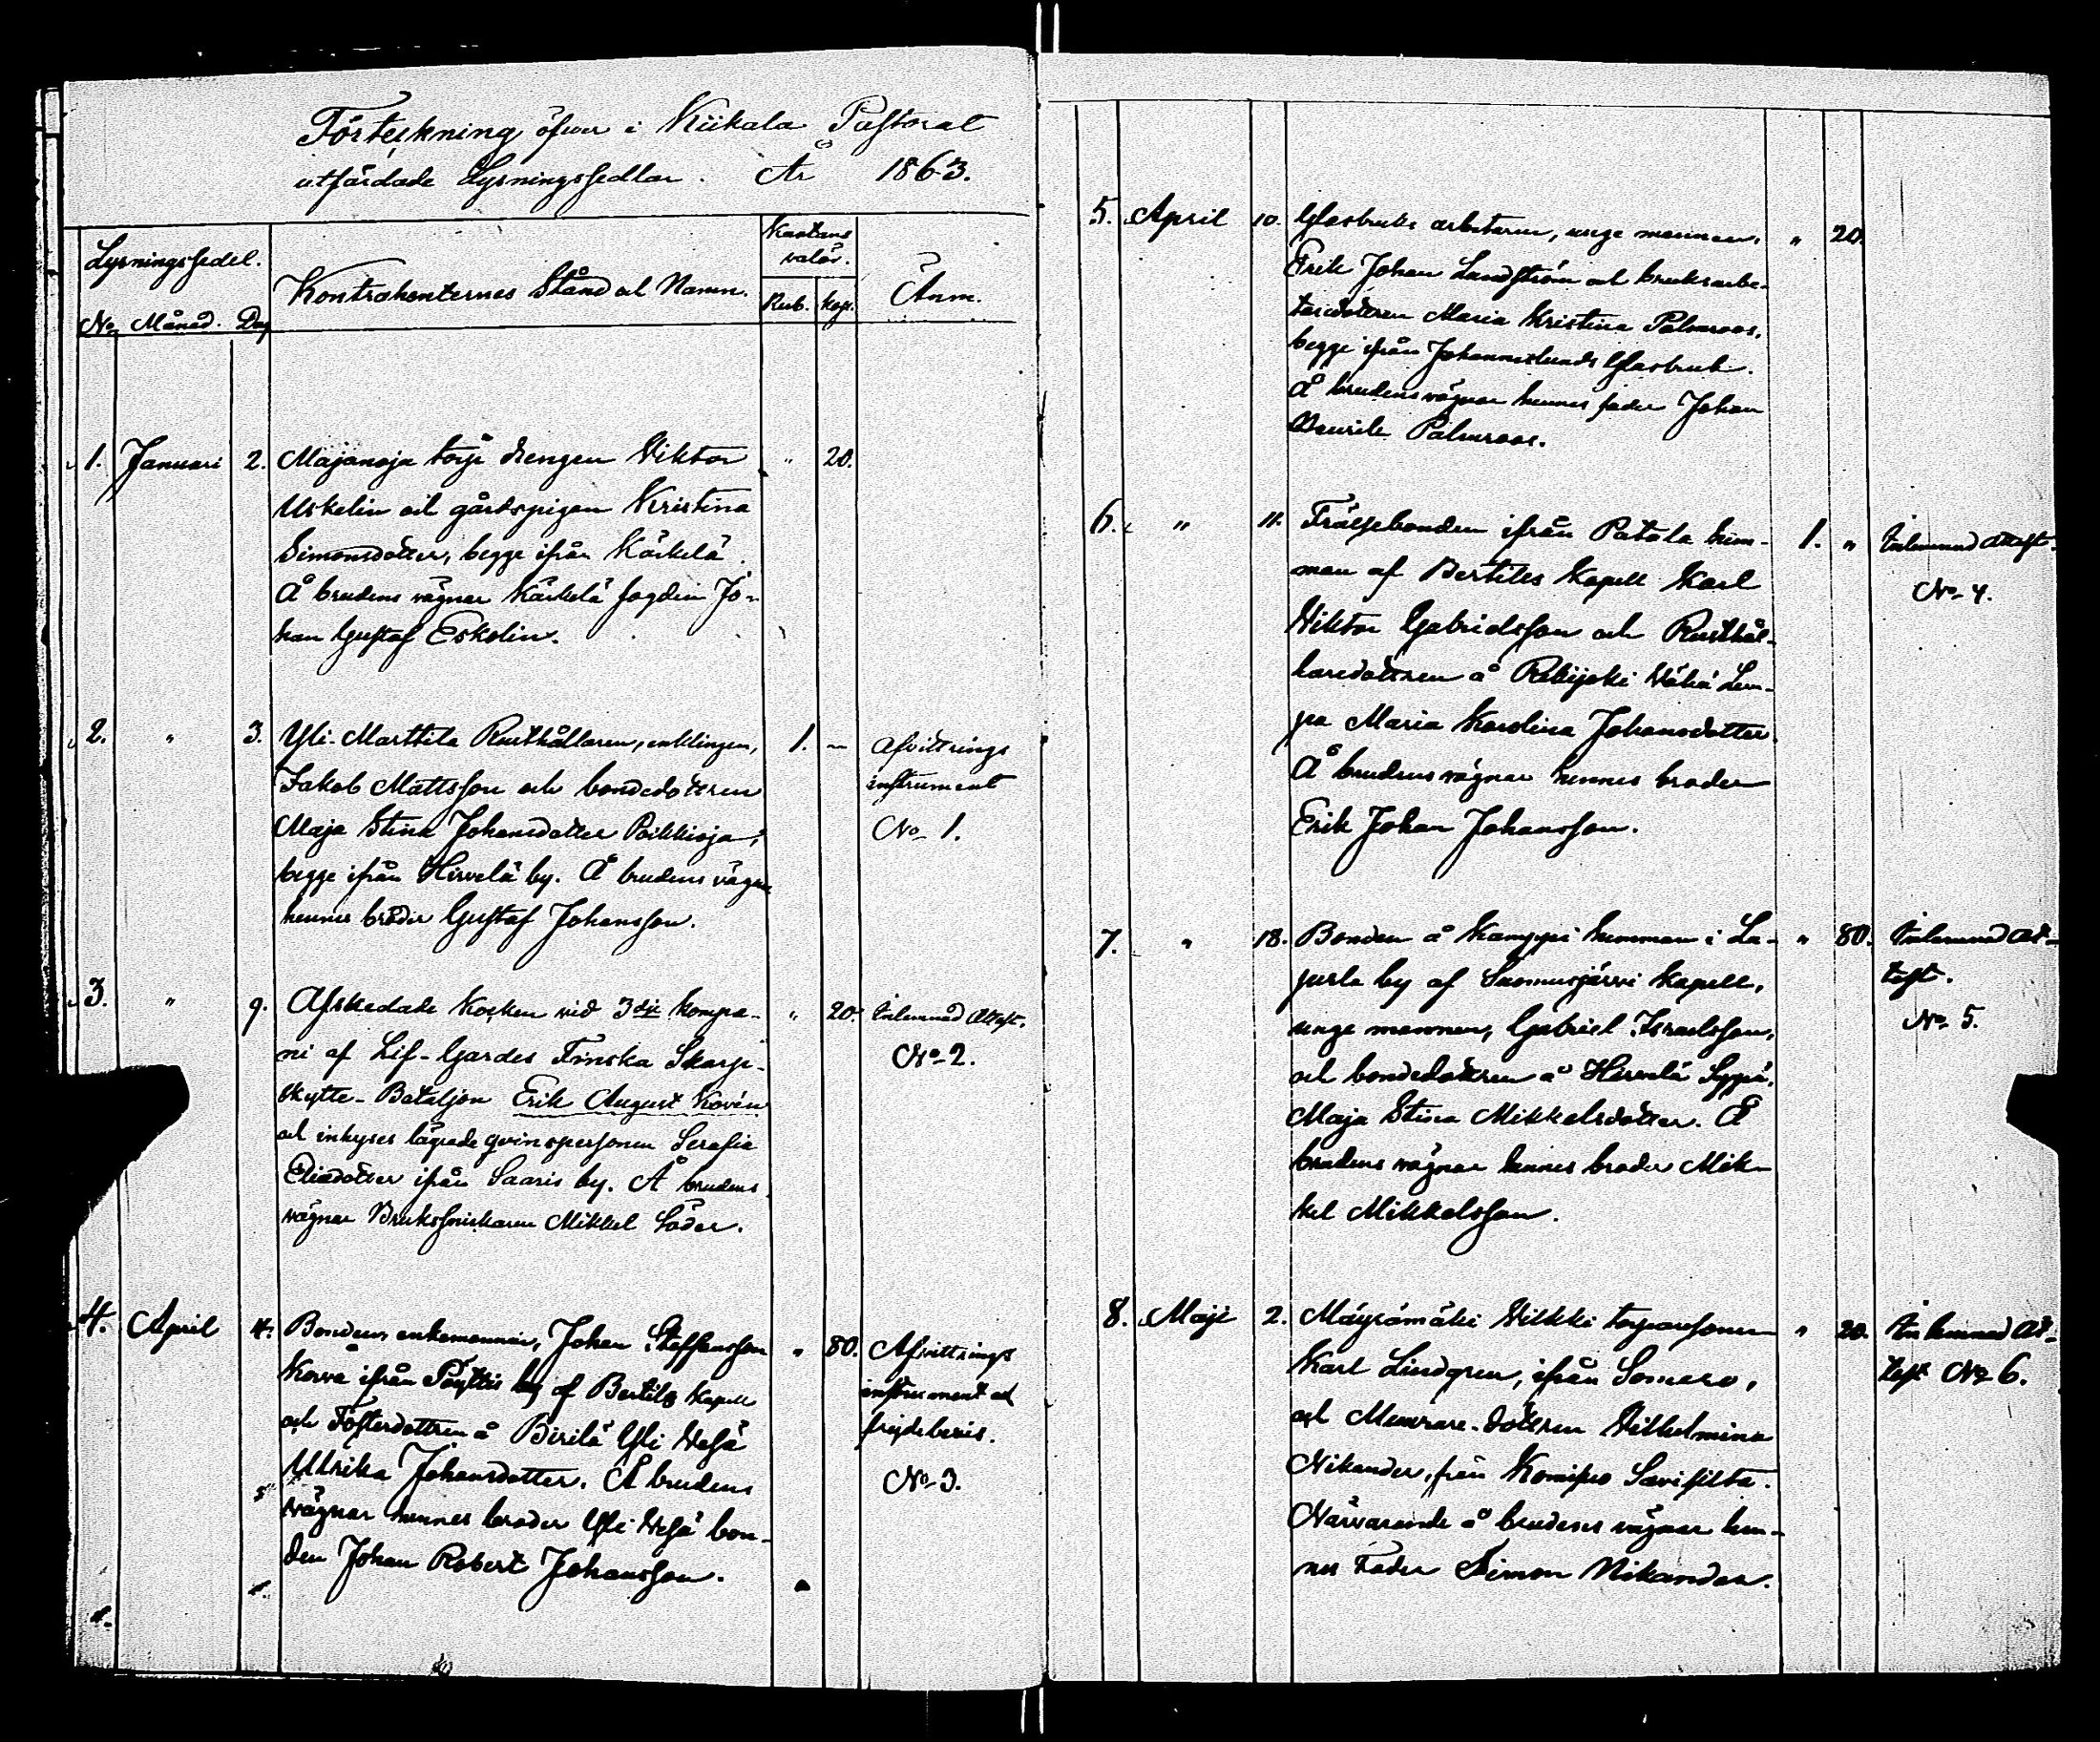 Förteckning öfver i Kiikala Pastorat
utfärdade Lysningssedlar. År 1863.
Lysningssedel.
No Månad. Dag
Kontrahenternes Stånd och Namn.
Kartans
valör.
Rub. kop.
Anm.
1. Januari 2. Majanoja torp drengen Viktor " 20.
Uskelin och gårdspigan Kristina
Simonsdotter, begge ifrån Kärkelä.
Å brudens vägnar Kärkelä fogden Jo-
han Gustaf Eskolin.
2. " 3. Yli-Marttila Rusthållaren, enklingen, 1. "
Jakob Mattsson och bondedottren
Maja Stina Johansdotter Poikkioja,
begge ifrån Hirvelä by. Å brudens vägnar
hennes broder Gustaf Johansson.
Afvittrings
instrument
No 1.
3. " 9. Afskedade Kocken vid 3dje Kompa- " 20.
ni af Lif-Gardes Finska Skarp-
skytte-Bataljon Erik August Kovén
och inhyses lägrade qvinspersonen Serafia
Eliædotter ifrån Saaris by. Å brudens
vägnar Brukssnickaren Mikkel Söder.
Inlemnad Attest.
No 2.
4. April 4. Bonden enkemannen, Johan Steffansson " 80.
Korva ifrån Pöytiö by af Bertils Kapell
och Fosterdottren å Pirilä Yli Wesä
Ulrika Johansdotter. Å brudens
vägnar hennes broder Yli Wesä bon-
den Johan Robert Johansson.
Afvittrings
instrument och
frejdebevis.
No 3.
5. April 10. Glasbruks arbetaren, unge mannen, " 20.
Erik Johan Landström och bruksarbe-
taredottren Maria Kristina Palmroos,
begge ifrån Johannislunds Glasbruk.
Å brudens vägnar hennes fader Johan
Henrik Palmroos.
6. " 11. Frälsebonden ifrån Patala hem- 1. "
man af Bertils Kapell Karl
Viktor Gabrielsson och Rusthål-
laredottren å Rekijoki Vähä Lem-
pa Maria Karolina Johansdotter.
Å brudens vägnar hennes broder
Erik Johan Johansson.
Inlemnad Attest.
No 4.
7. " 18. Bonden å Kamppi hemman i La- " 80.
perla by af Suomusjärvi Kapell,
unge mannen, Gabriel Israelsson,
och bondedottren å Hirvelä Seppä,
Maja Stina Mikkelsdotter. Å
brudens vägnar hennes broder Mik-
kel Mikkelsson.
Inlemnad At-
test.
No 5.
8. Maji 2. Mäyrämäki Vilkki torparsonen " 20.
Karl Lindgren, ifrån Somero,
och Murare-dottren Vilhelmina
Nikander, från Komisuo Savisilta.
Närvarande å brudens vägnar hen-
nes Fader Simon Nikander.
Inlemnad At-
test No 6.